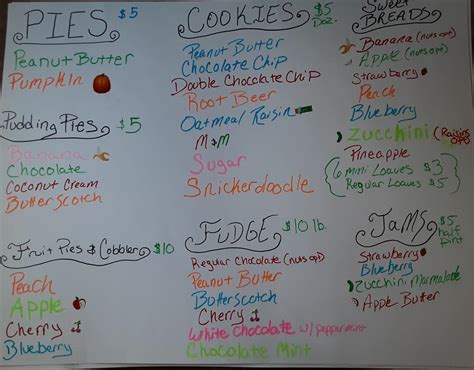 PIES $5
Peanut Butter
Pumpkin
Pudding Pies $5
Banana
Chocolate
Coconut Cream
Butterscotch
Fruit Pies & Cobbler $10
Peach
Apple
Cherry
Blueberry
COOKIES $5 Doz.
Peanut Butter
Chocolate Chip
Double Chocolate Chip
Root Beer
Oatmeal Raisin
M&M
Sugar
Snickerdoodle
FUDGE $10 lb.
Regular Chocolate (nuts opt)
Peanut Butter
Butterscotch
Cherry
White Chocolate w/peppermint
Chocolate Mint
Sweet
BREADS
Banana (nuts opt)
Apple (nuts opt)
Strawberry
Peach
Blueberry
Zucchini (Raisins opt)
Pineapple
6 mini Loaves $3
Regular Loaves $5
JAMS $5 half pint
Strawberry
Blueberry
Zucchini Marmalade
Apple Butter